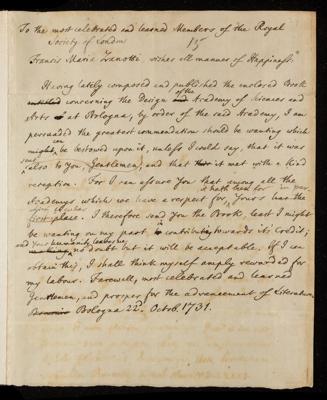 To the most celebrated and learned Members of the Royal
Society of London
Francis Maria Zanotti, wishes all manner of Happiness.
Having lately composed and published the inclosed Book
concerning the Design of the Academy of Sciences and
Arts at Bologna, by order of the said Academy, I am
persuaded the greatest commendation should be wanting which
might be bestowed upon it, unless I could say, that it was
sent also to You, Gentlemen; and that it met with a kind
reception. For I can assure You that among all the
Academys which we have a respect for, Yours has the
first place. I therefore send You the Book, least I might
be wanting on my part, to contribute towards its Credit;
and Your humanity leaves me
no doubt but it will be acceptable. If I can
obtain this, I shall think myself amply rewarded for
my labour. Farewell, most celebrated and learned
Gentlemen, and prosper, for the advancement of Literature.
Bologna 22d. Octob. 1731.